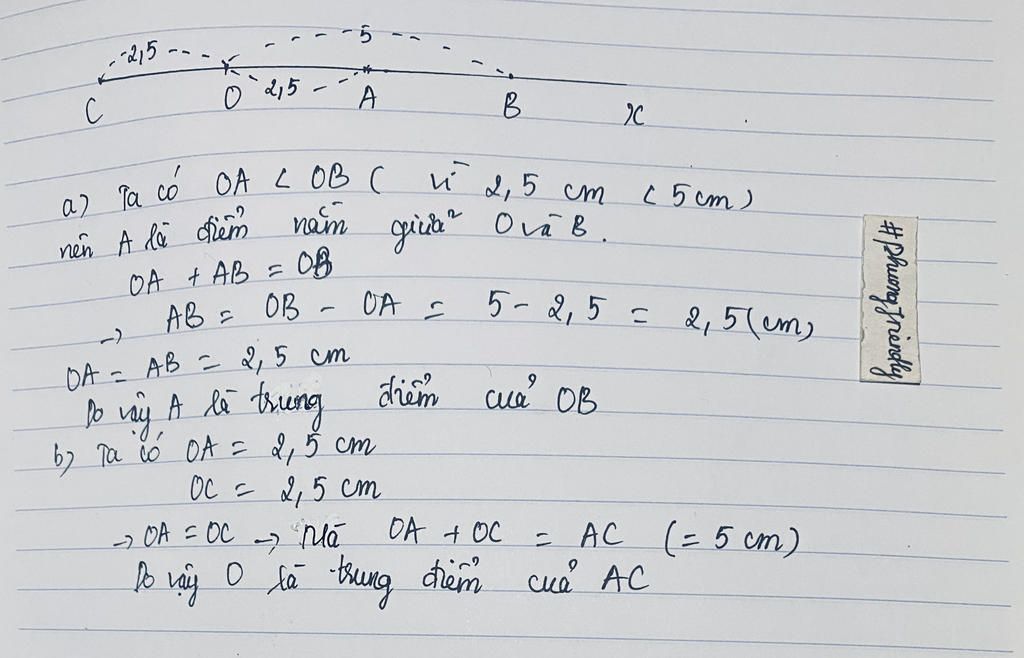 2,5 5
2,5
C O A B x
a) Ta có OA < OB ( vì 2,5 cm < 5cm)
nên A là điểm nằm giữa O và B.
OA + AB = OB
→ AB = OB - OA = 5 - 2,5 = 2,5 (cm)
OA = AB = 2,5 cm
Do vậy A là trung điểm của OB
b) Ta có OA = 2,5 cm
OC = 2,5 cm
→ OA = OC → Mà OA + OC = AC (= 5 cm)
Do vậy O là trung điểm của AC
#phuongfriendly